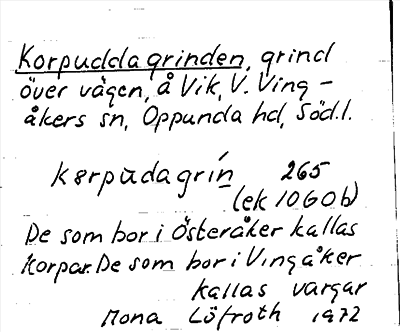 Korpuddagrinden, grind
över vägen, å Vik, V. Ving-
åkers sn, Oppunda hd, Söd.l.
kɵrpùdagrín 265
(ek 1060b)
De som bor i Österåker kallas
korpar. De som bor i Vingåker
kallas vargar
Mona Löfroth 1972